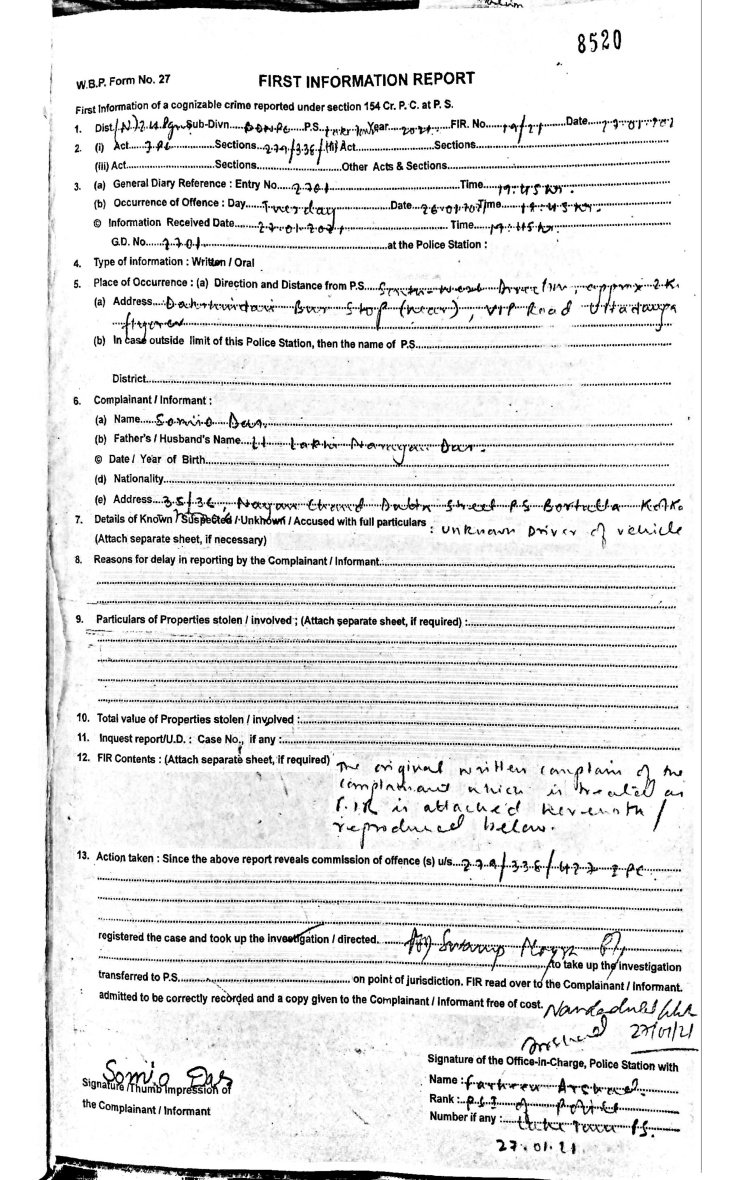 8520
W.B.P. Form No. 27 FIRST INFORMATION REPORT
First Information of a cognizable crime reported under section 154 Cr. P. C. at P. S.
1. Dist. Sub-Divn. P.S. Year 2021 FIR. No. 19/21 Date
2. (i) Act IPC Sections 279/336/ (ii) Act Sections
(iii) Act Sections Other Acts & Sections
3. (a) General Diary Reference : Entry No. 2701 Time 19:45 hr.
(b) Occurrence of Offence : Day Tuesday Date 26.01.2021 Time
© Information Received Date 27.01.2021 Time 19:45 hr.
G.D. No. 2701 at the Police Station :
4. Type of information : Written / Oral
5. Place of Occurrence : (a) Direction and Distance from P.S. South West Direction, approx 2 K.
(a) Address Bus Stop (near), VIP Road
flyover
(b) In case outside limit of this Police Station, then the name of P.S.
District
6. Complainant / Informant :
(a) Name Somio Das.
(b) Father's / Husband's Name Lt. Narayan Das.
© Date / Year of Birth
(d) Nationality
(e) Address 35/36, Nayan Chand Dutta Street P.S Bortalla
7. Details of Known / Suspected / Unknown / Accused with full particulars : Unknown Driver of vehicle
(Attach separate sheet, if necessary)
8. Reasons for delay in reporting by the Complainant / Informant
9. Particulars of Properties stolen / involved ; (Attach separate sheet, if required) :
10. Total value of Properties stolen / involved :
11. Inquest report/U.D. : Case No., if any :
12. FIR Contents : (Attach separate sheet, if required) The original written complain of the
complainant which is treated as
F.I.R is attached herewith /
reproduced below.
13. Action taken : Since the above report reveals commission of offence (s) u/s. 279/336/427 IPC
registered the case and took up the investigation / directed.
to take up the investigation
transferred to P.S. on point of jurisdiction. FIR read over to the Complainant / Informant.
admitted to be correctly recorded and a copy given to the Complainant / Informant free of cost.
27/01/21
Signature of the Office-in-Charge, Police Station with
Somio Das
Signature / Thumb Impression of
the Complainant / Informant
Name :
Rank : P.S.I of Police
Number if any : Lake Town P.S.
27.01.21